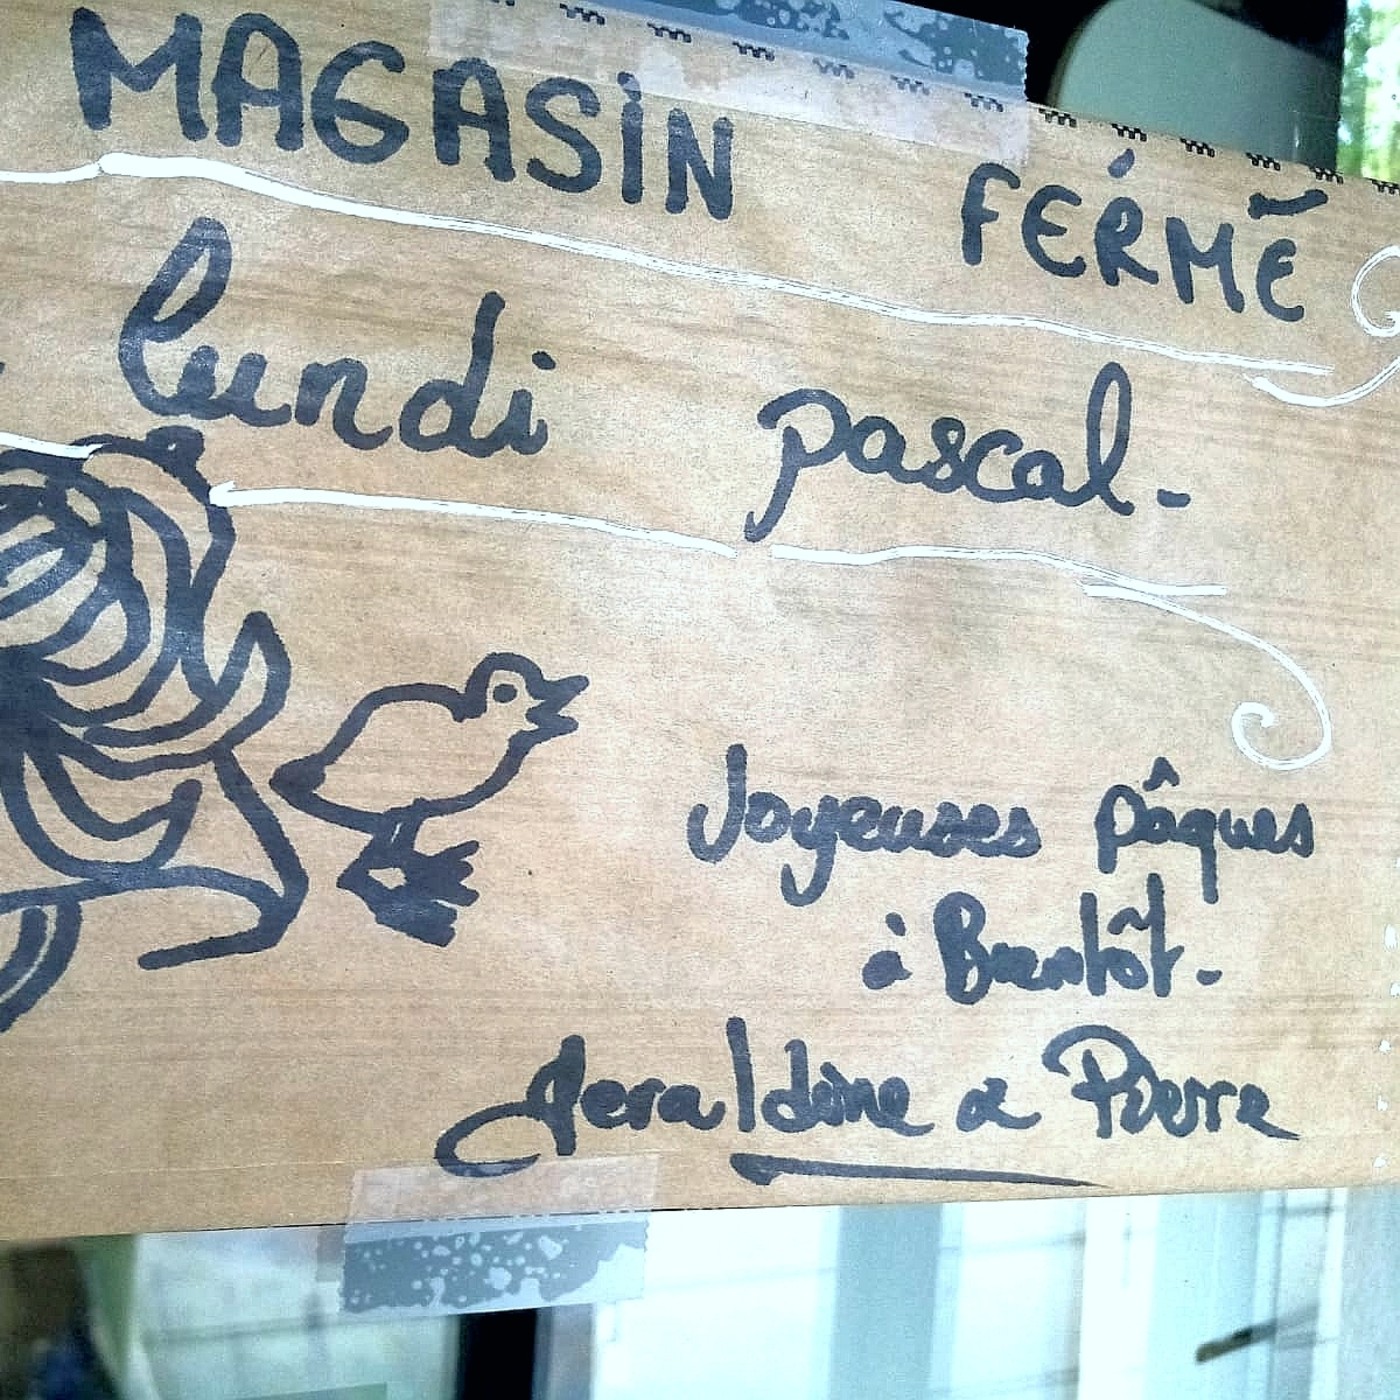 MAGASIN FERMÉ
lundi pascal.
Joyeuses Pâques
à Bientôt.
Geraldine & Pierre